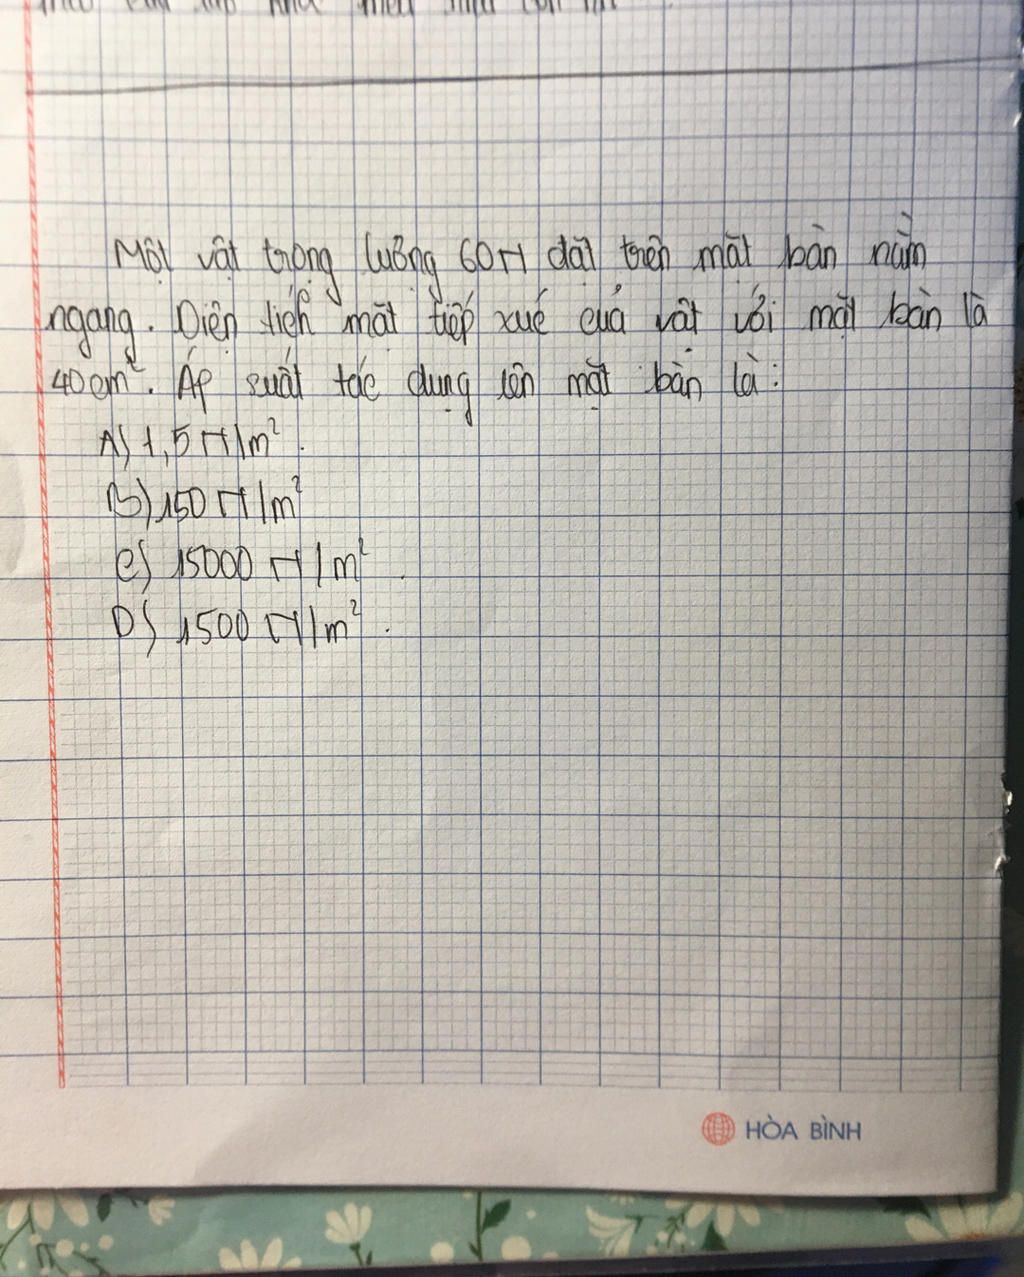 Một vật trọng lượng 60N đặt trên mặt bàn nằm
ngang. Diện tích mặt tiếp xúc của vật với mặt bàn là
40cm². Áp suất tác dụng lên mặt bàn là:
A) 1,5 N/m².
B) 150 N/m²
C) 15000 N/m².
D) 1500 N/m².
HÒA BÌNH